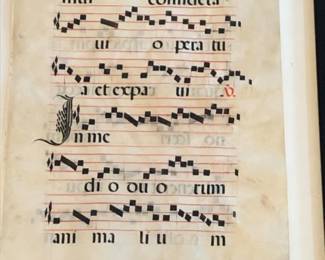 consideravi
ui o pera tu
a et expa ui ℣.
In me
di o du o rum
ani ma li u m